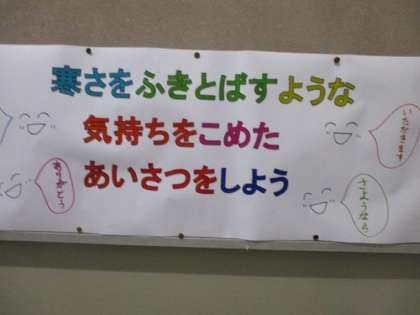 寒さをふきとばすような
気持ちをこめた
あいさつをしよう
いただきます
ありがとう
さようなら